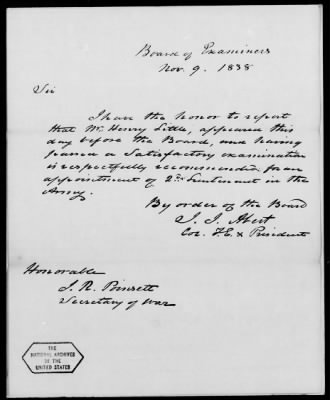 Board of Examiners
Nov. 9. 1838
Sir
I have the honor to report
that Mr. Henry Little, appeared this
day before the Board, and having
passed a Satisfactory examination
is respectfully recommended for an
appointment of 2nd Lieutenant in the
Army.
By order of the Board
J. J. Abert
Col. T.E. & President
Honorable
J. R. Poinsett
Secretary of War
THE
NATIONAL ARCHIVES
OF THE
UNITED STATES